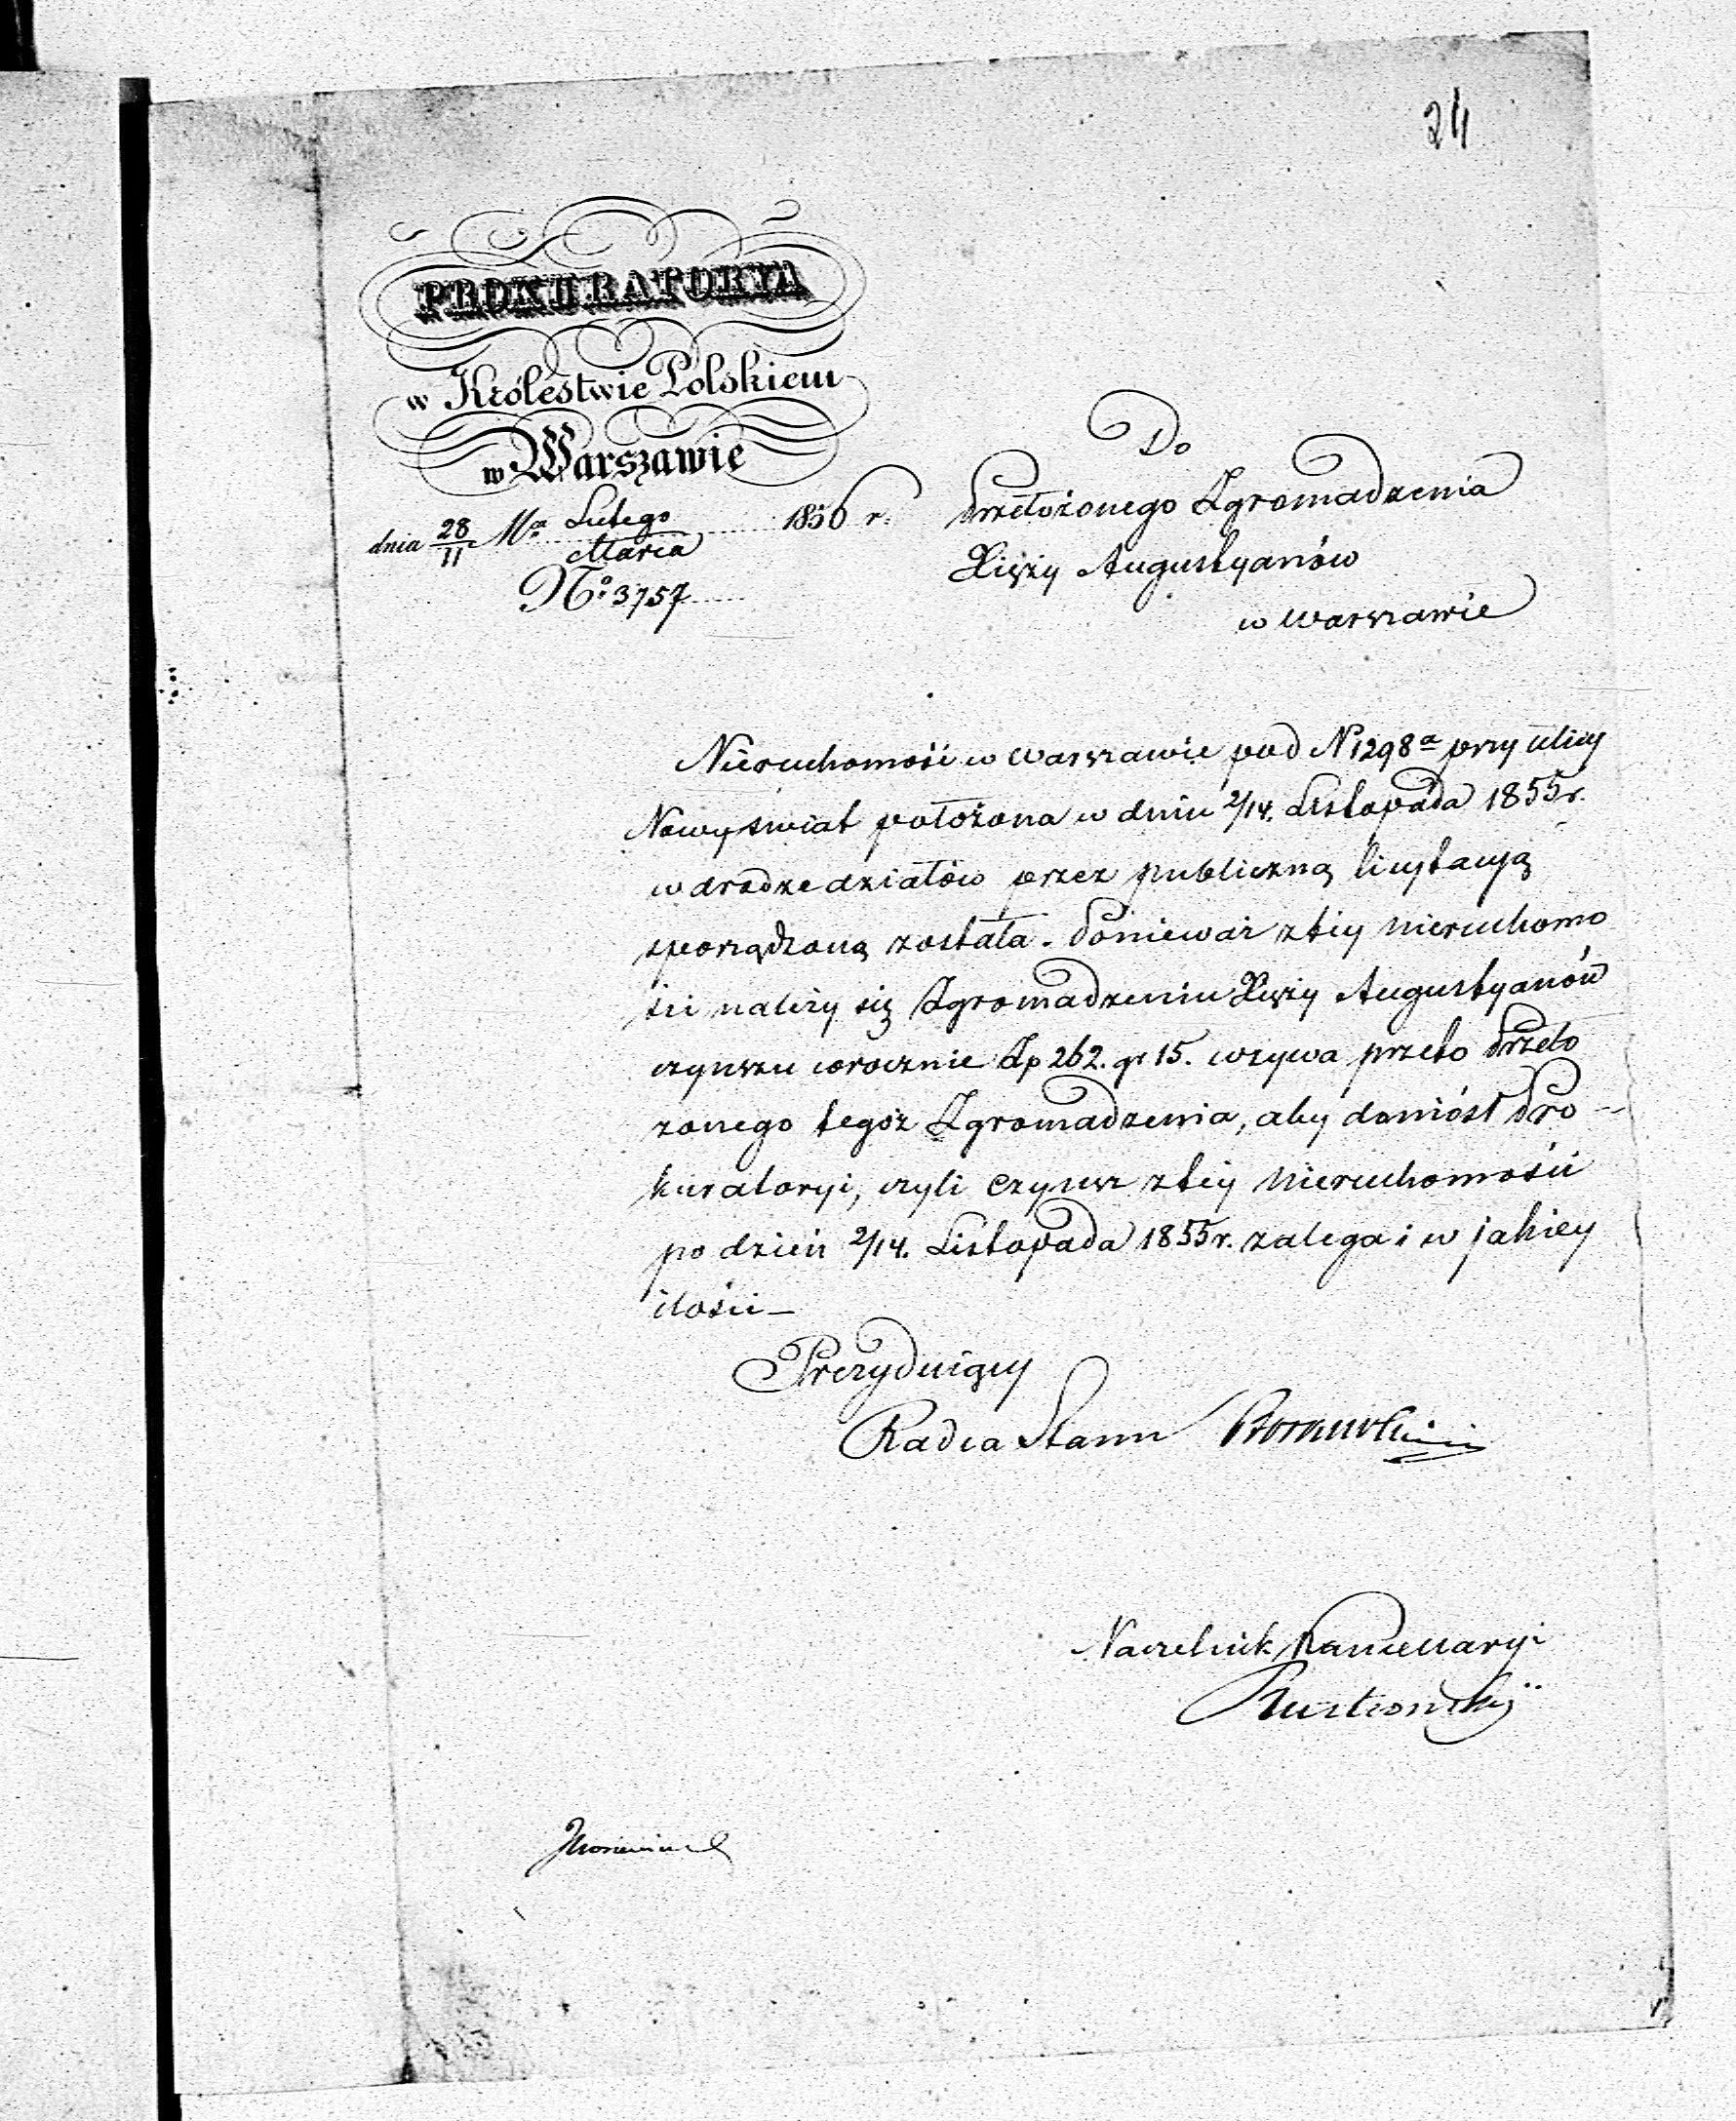 24
PROKURATORYA
w Królestwie Polskiem
w Warszawie
dnia 28/11 Mca Lutego/Marca 1856 r.
No 3757
Do
Przełożonego Zgromadzenia
Xięży Augustyanów
w Warszawie
Nieruchomość w Warszawie pod N 1298a przy ulicy
Nowy świat położona w dniu 2/14. Listopada 1855 r.
w drodze działów przez publiczną licytacyą
sporządzoną została. Ponieważ z téy nieruchomo
ści należy się Zgromadzeniu Xięży Augustyanów
czynszu corocznie Zp 262. gr 15. wzywa przeto Przeło
żonego tegoż Zgromadzenia, aby doniósł Pro-
kuratoryi, czyli czynsz z téy Nieruchomości
po dzień 2/14. Listopada 1855 r. zalega i w jakiey
ilości –
Prezyduiący
Radca Stanu
Naczelnik Kancellaryi